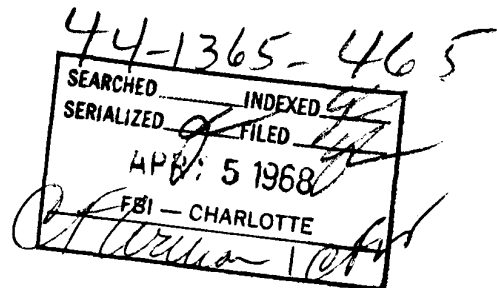 44-1365-465
SEARCHED INDEXED
SERIALIZED FILED
APR 5 1968
FBI — CHARLOTTE